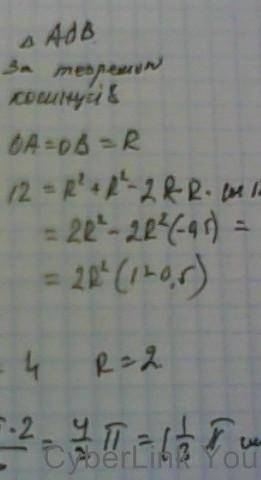 △ AOB.
За теоремою
косинусів
OA = OB = R
12 = R² + R² - 2R·R · cos 1
= 2R² - 2R²(-0,5) =
= 2R²(1+0,5)
4 R = 2
·2 = 4/3 π = 1 1/3 π
CyberLink You